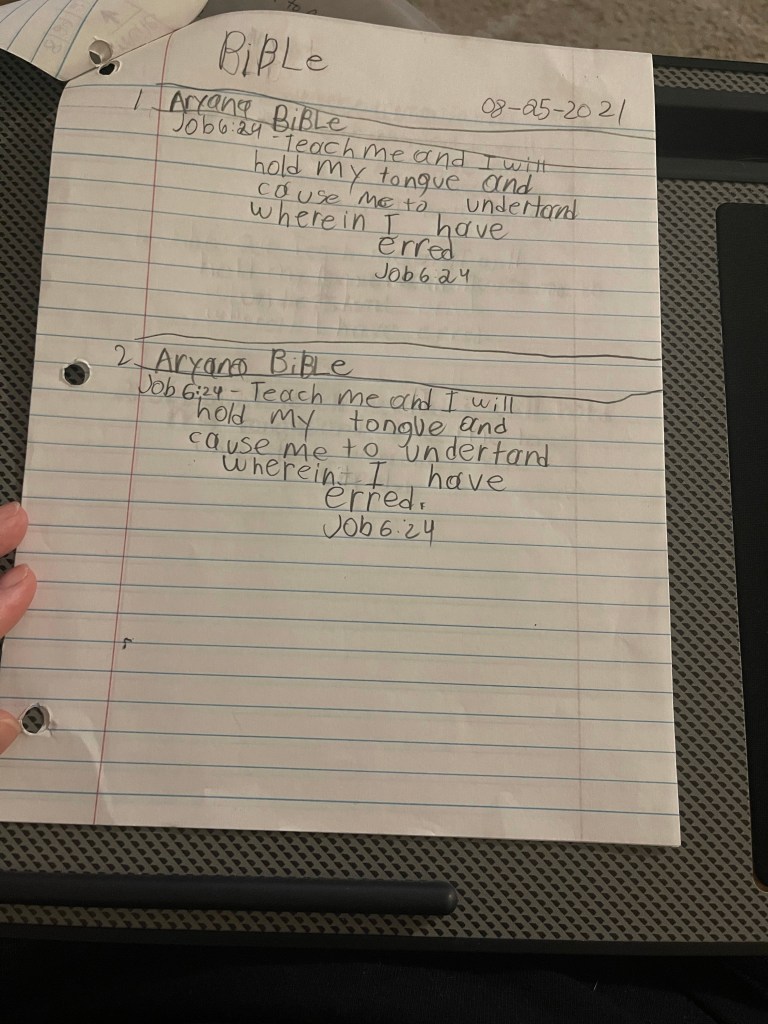 BiBLe
08-25-2021
1. Aryana BiBLe
Job 6:24 - Teach me and I will
hold my tongue and
cause me to undertand
wherein I have
erred
Job 6 24
2. Aryana BiBLe
Job 6:24 - Teach me and I will
hold my tongue and
cause me to undertand
wherein I have
erred.
Job 6:24